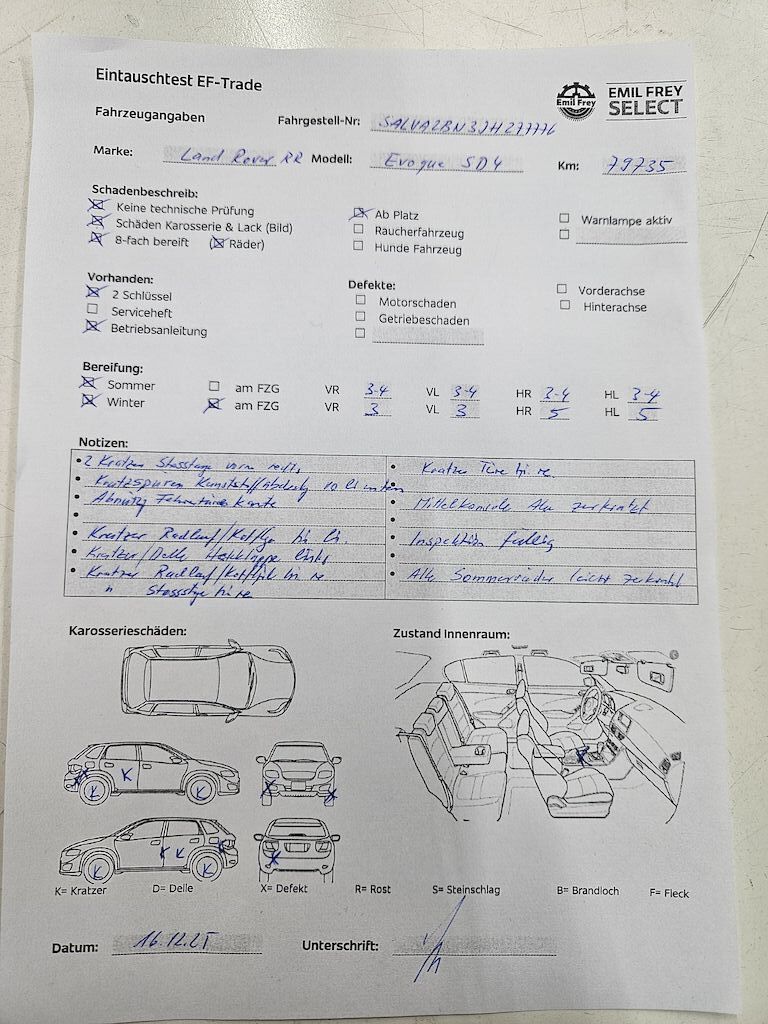 Eintauschtest EF-Trade
Emil Frey
EMIL FREY
SELECT
Fahrzeugangaben Fahrgestell-Nr: SALVA2BN3JH277776
Marke: Land Rover RR Modell: Evoque SD4 Km: 79735
Schadenbeschreib:
Keine technische Prüfung Ab Platz Warnlampe aktiv
Schäden Karosserie & Lack (Bild) Raucherfahrzeug
8-fach bereift (Räder) Hunde Fahrzeug
Vorhanden: Defekte:
2 Schlüssel Motorschaden Vorderachse
Serviceheft Getriebeschaden Hinterachse
Betriebsanleitung
Bereifung:
Sommer am FZG VR 3-4 VL 3-4 HR 3-4 HL 3-4
Winter am FZG VR 3 VL 3 HR 5 HL 5
Notizen:
2 Kratzer Stosstage vorn rechts Kratzer Türe hi re
Kratzspuren Kunststoff unten
Abnützg Kante Mittelkonsole Alu zerkratzt
Kratzer Radlauf/Kotflgl hi li Inspektion fällig
Kratzer/Delle Heckklappe links
Kratzer Radlauf/Kotflgl hi re Alle Sommerräder leicht zerkratzt
" Stossstge hi re
Karosserieschäden: Zustand Innenraum:
K K K
X X
K K K K
X
K= Kratzer D= Delle X= Defekt R= Rost S= Steinschlag B= Brandloch F= Fleck
Datum: 16.12.25 Unterschrift: